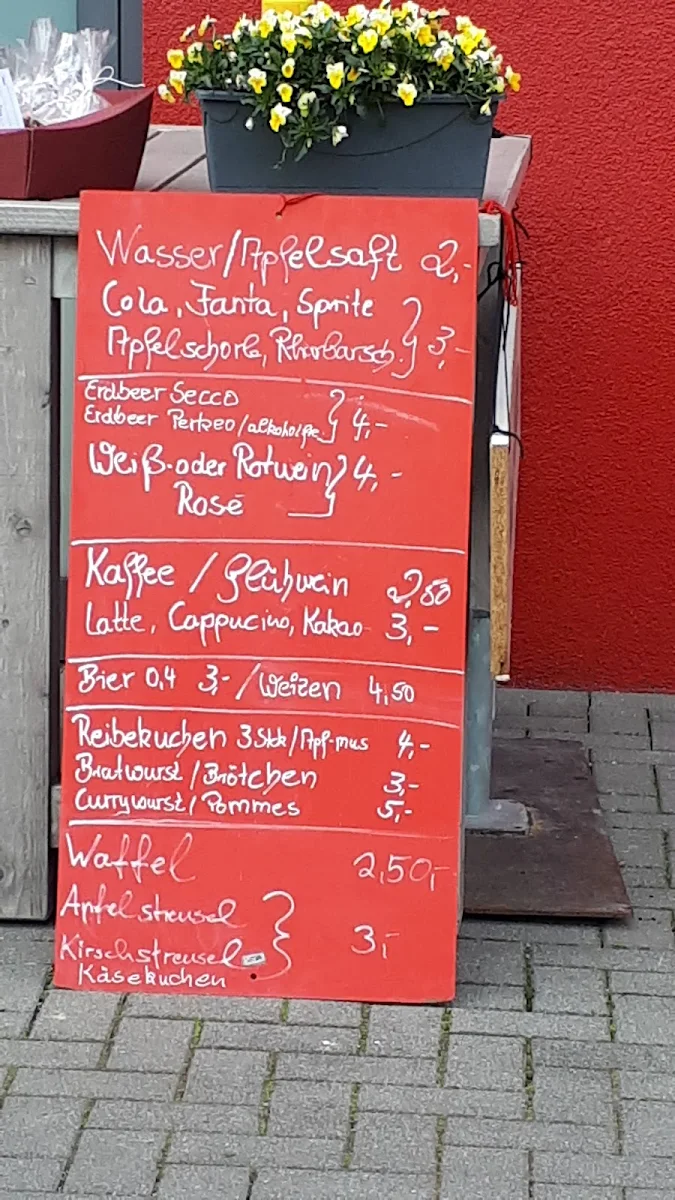 Wasser/Apfelsaft 2,-
Cola, Fanta, Sprite
Apfelschorle, Rharbarsch. } 3,-
Erdbeer Secco
Erdbeer Perlseo/alkoholfre. } 4,-
Weiß- oder Rotwein } 4,-
Rosé
Kaffee / Glühwein 2,50
Latte, Cappucino, Kakao 3,-
Bier 0,4 3,- / Weizen 4,50
Reibekuchen 3 Stk/Apf-mus 4,-
Bratwurst / Brötchen 3,-
Currywurst / Pommes 5,-
Waffel 2,50,-
Apfelstreusel
Kirschstreusel } 3,-
Käsekuchen